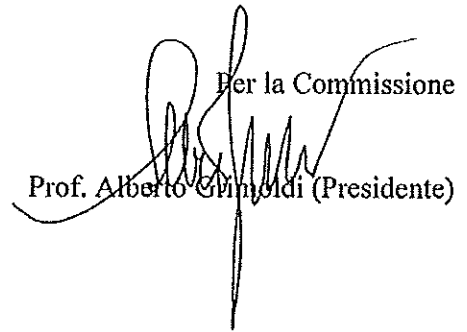 Per la Commissione
Prof. Alberto Grimoldi (Presidente)